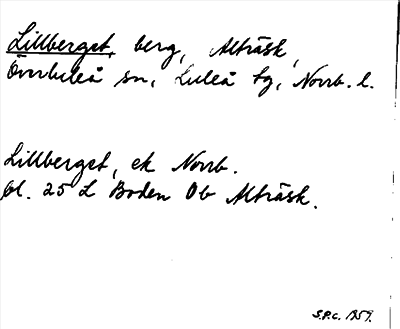 Lillberget, berg, Alträsk,
Överluleå sn, Luleå tg, Norrb. l.
Lillberget, ek Norrb.
bl. 25 L Boden Ob Alträsk.
S.P.C. 1959.